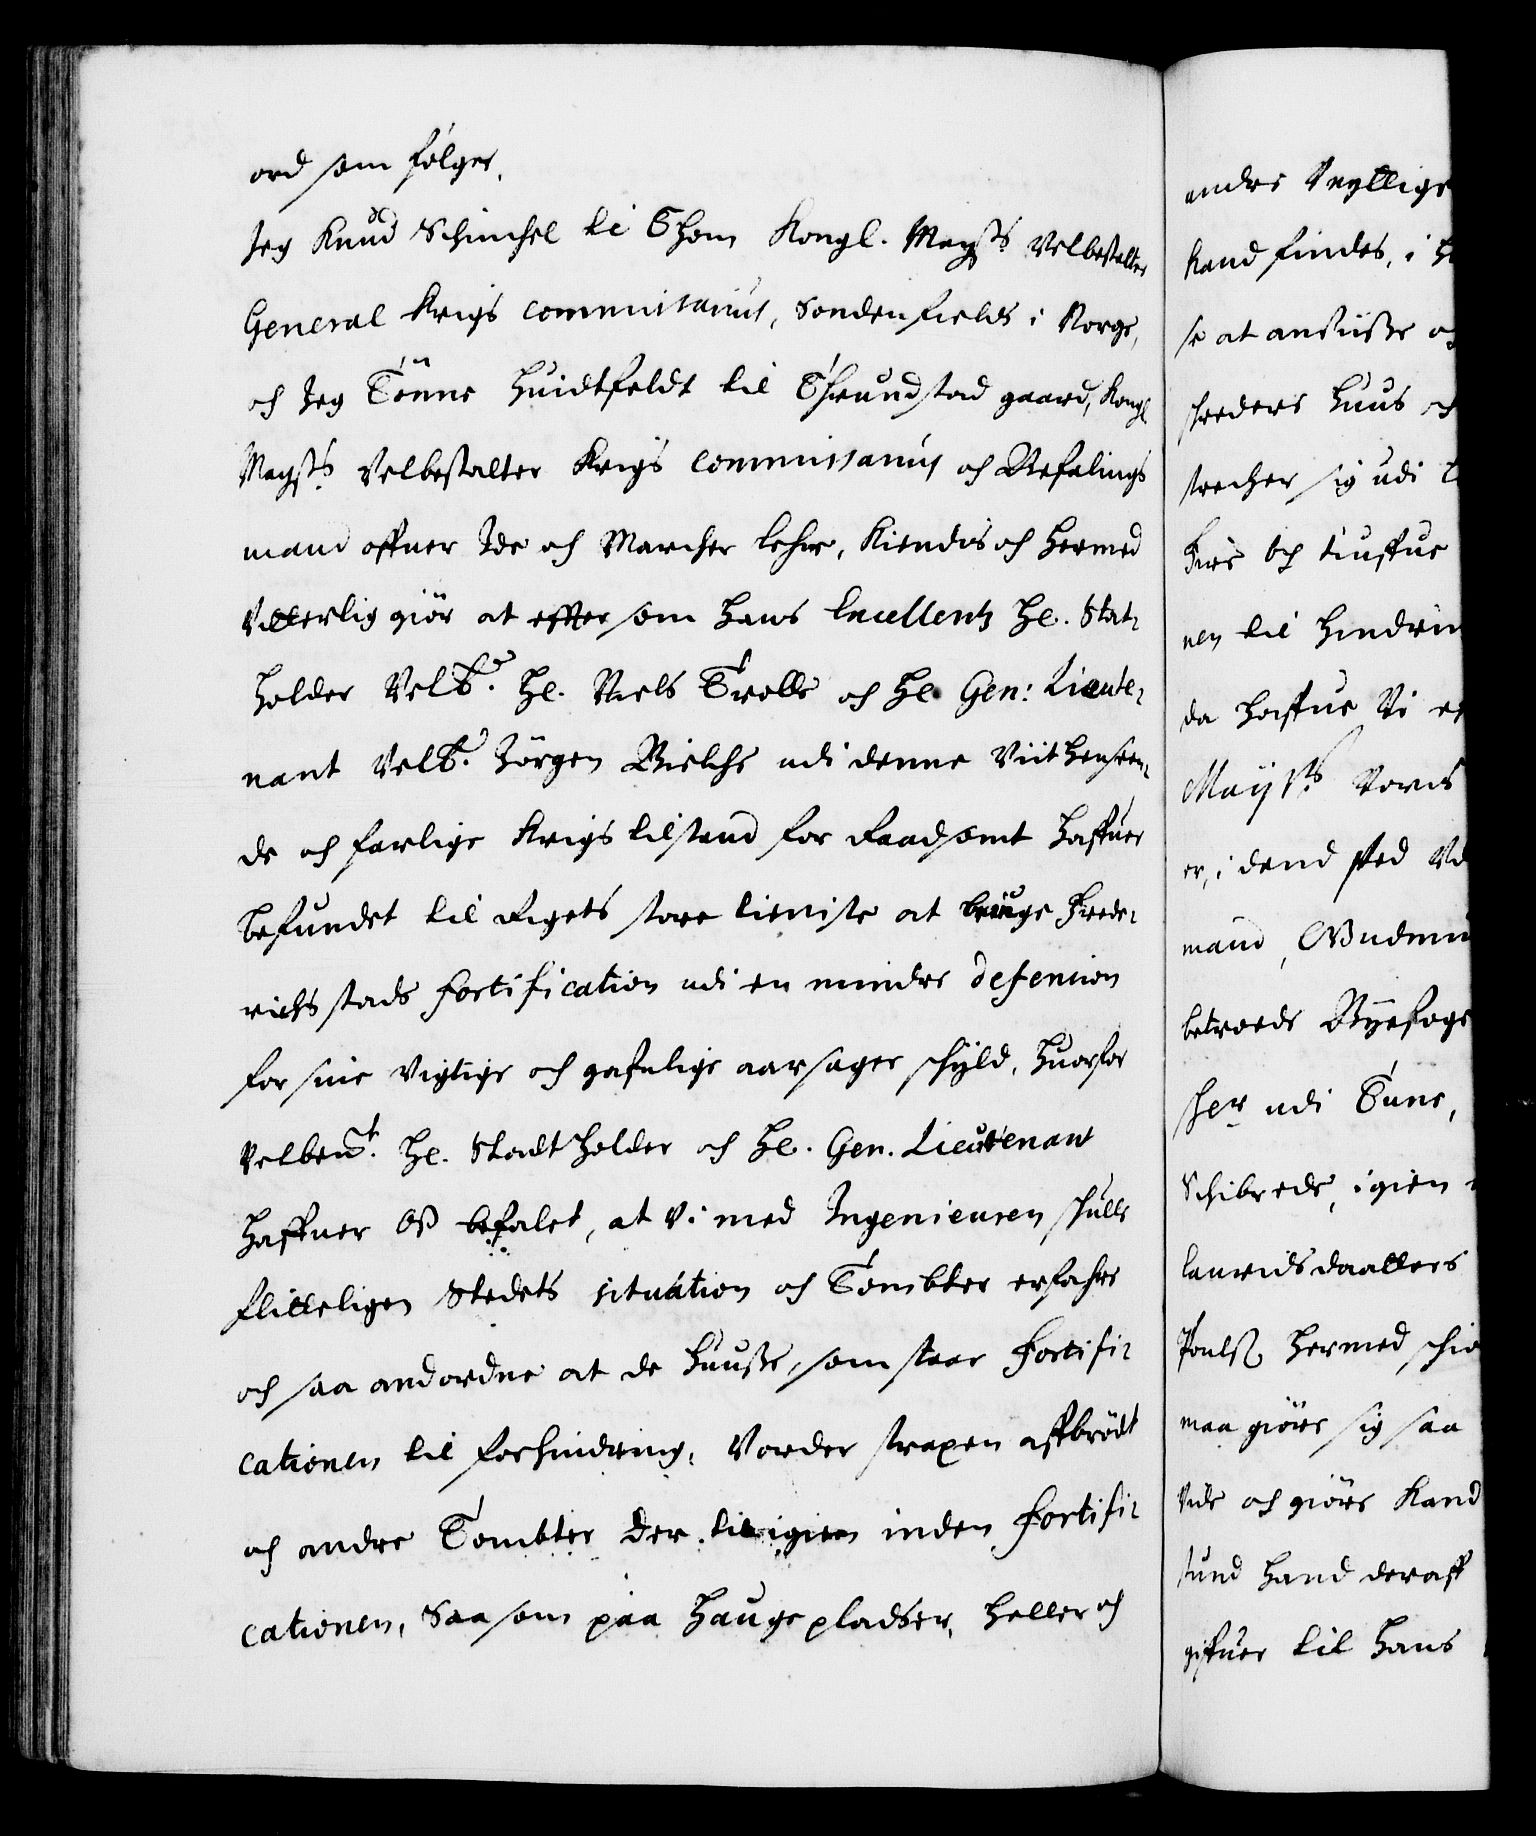 ord som følger.
Jeg Knud Schinchel til Thom Kongl. Mayst:s Velbestalter
General Krigs Commissarius, Søndenfields i Norge,
och Jeg Tönne Huidtfeldt til Thrundstad gaard, Kongl
Mayst:s Velbestalter Krigs Commissarius och Befalings
mand offuer Ide och Marcher lehn, Kiendis och hermed
Vitterlig giör at effter som hans Excellentz Hl. Stat-
holder Velb. Hl. Niels Trolle och Hl. Gen: Lieute-
nant Velb. Jörgen Bielche udi denne Viit henseen-
de och farlige Krigs tilstand for raadsomt haffuer
befundet til Rigets store tieniste at bringe Frede-
richstads fortification udi en mindre defension
for sine Vigtige och gafnlige aarsager schyld, huorfor
Velbem.t Hl. Stadtholder och Hl. Gen. Lieutenant
haffuer Oß befalet, at Vi med Ingenieuren schulle
flitteligen Stedets situation och Tombter erfahre
och saa andordne at de Huusse, som staar Fortifi-
cationen til forhindring, Vorder straxen affbrödt
och andre Tombter der til igien inden Fortifi-
cationen, Saasom paa Hauge pladser, heller och
andre
Kand findes, i
se at ansiisse
schreders Huus och
strecher sig udi
Fire
nen til hindring
da haffue Vi
Mayst:s Voris
er, i dend sted
mand, Gudmu
betroede Byefoge
scher udi Tune,
Schibrede, igien
Lauridsdaatters
Poulsß hermed
maa giöre sig saa
Vide och giöre Kand
sund hand deraff
giffuer til hans